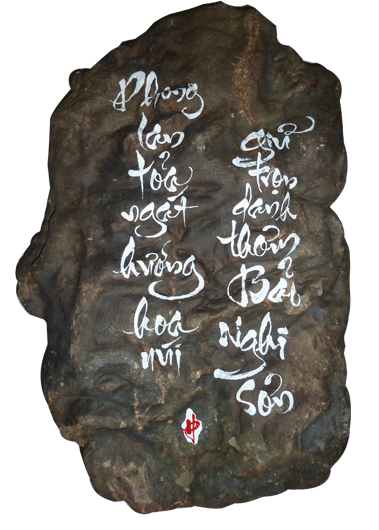 Phong lan tỏa ngát hương hoa núi
giữ trọn danh thơm Bải Nghi Sơn